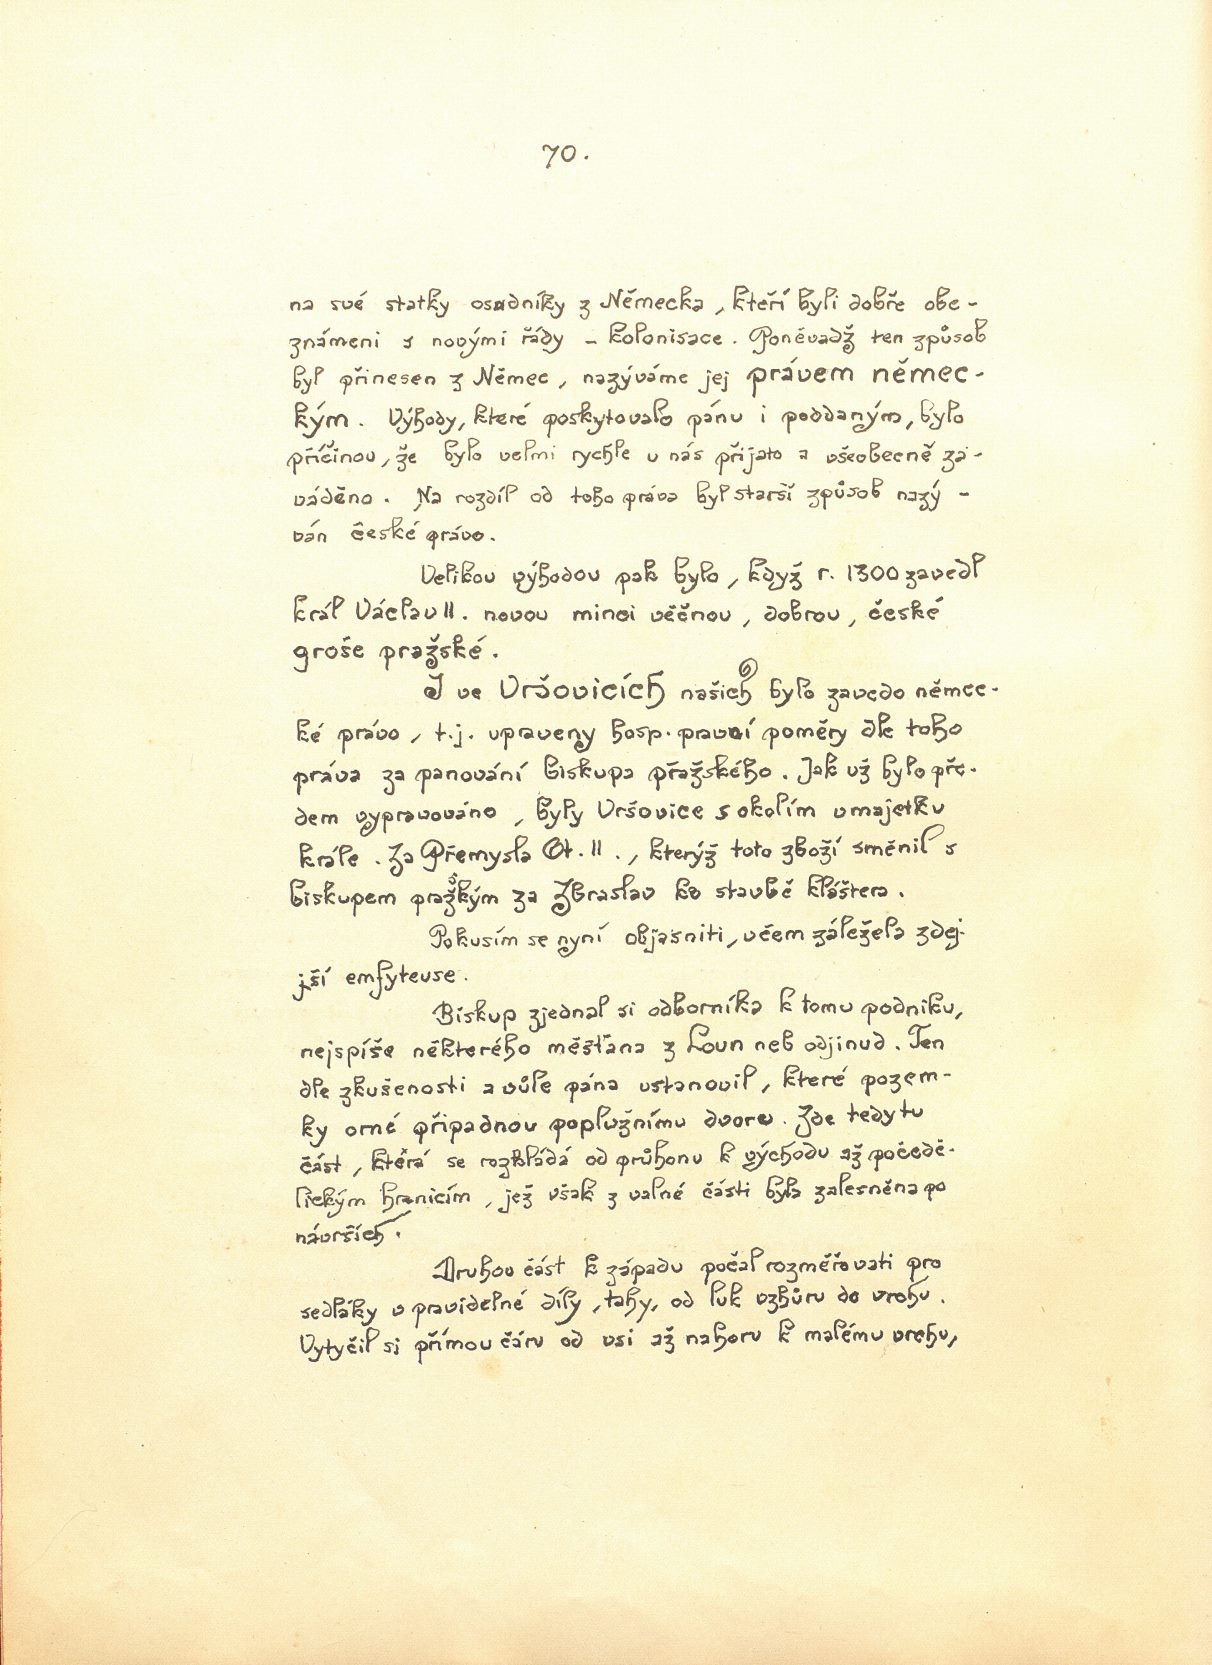 70.
na své statky osadníky z Německa, kteří byli dobře obe-
známeni s novými řády – kolonisace. Poněvadž ten způsob
byl přinesen z Němec, nazýváme jej právem němec-
kým. Výhody, které poskytovalo pánu i poddaným, bylo
příčinou, že bylo velmi rychle u nás přijato a všeobecně za-
váděno. Na rozdíl od toho práva byl starší způsob nazý-
ván české právo.
Velikou výhodou pak bylo, když r. 1300 zavedl
král Václav II. novou minci věčnou, dobrou, české
groše pražské.
I ve Vršovicích našich bylo zavedo němec-
ké právo, t.j. upraveny hosp. pravní poměry dle toho
práva za panování biskupa přažského. Jak už bylo pře-
dem vypravováno, byly Vršovice s okolím v majetku
krále. Za Přemysla Ot. II., kterýž toto zboží směnil s
biskupem pražským za Zbraslav ke stavbě kláštera.
Pokusím se nyní objasniti, v čem záležela zdej-
jší emfyteuse.
Biskup zjednal si odborníka k tomu podniku,
nejspíše některého měšťana z Loun neb odjinud. Ten
dle zkušenosti a vůle pána ustanovil, které pozem-
ky orné připadnou poplužnímu dvoru. Zde tedy tu
část, která se rozkládá od průhonu k východu až po čedě-
lickým hranicím, jež však z valné části byla zalesněna po
návrších.
Druhou část k západu počal rozměřovati pro
sedláky v pravidelné díly, tahy, od luk vzhůru do vrchu.
Vytyčil si přímou čáru od vsi až nahoru k malému vrchu,